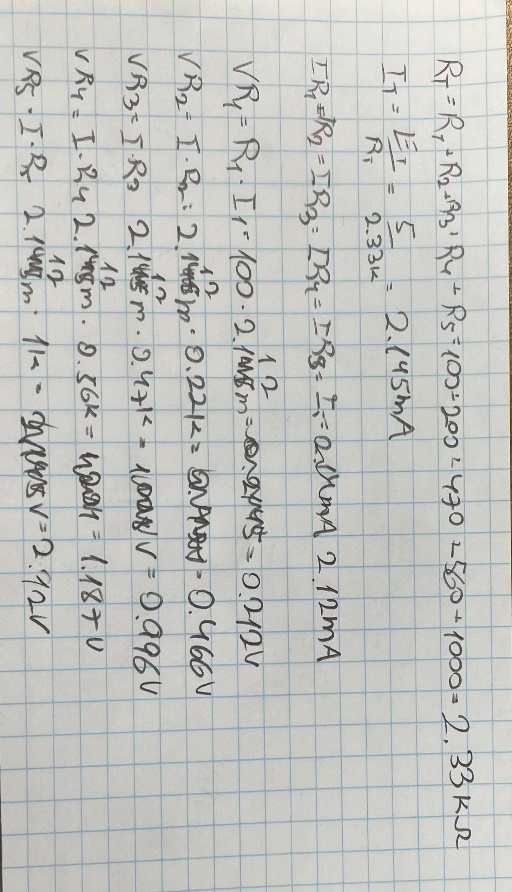 RT = R1 + R2 + R3 + R4 + R5 = 100 + 200 + 470 + 560 + 1000 = 2.33 KΩ
IT = ET/RT = 5/2.33K = 2.145mA
IR1 = IR2 = IR3 = IR4 = IR5 = I1 = 2.12mA
VR1 = R1 · I1 = 100 · 2.12m = 0.212V
VR2 = I · R2 = 2.12m · 0.22K = 0.466V
VR3 = I · R3 2.12m · 0.47K = V = 0.996V
VR4 = I · R4 2.12m · 0.56K = 1.187V
VR5 · I · R5 2.12m · 1K = V = 2.12V